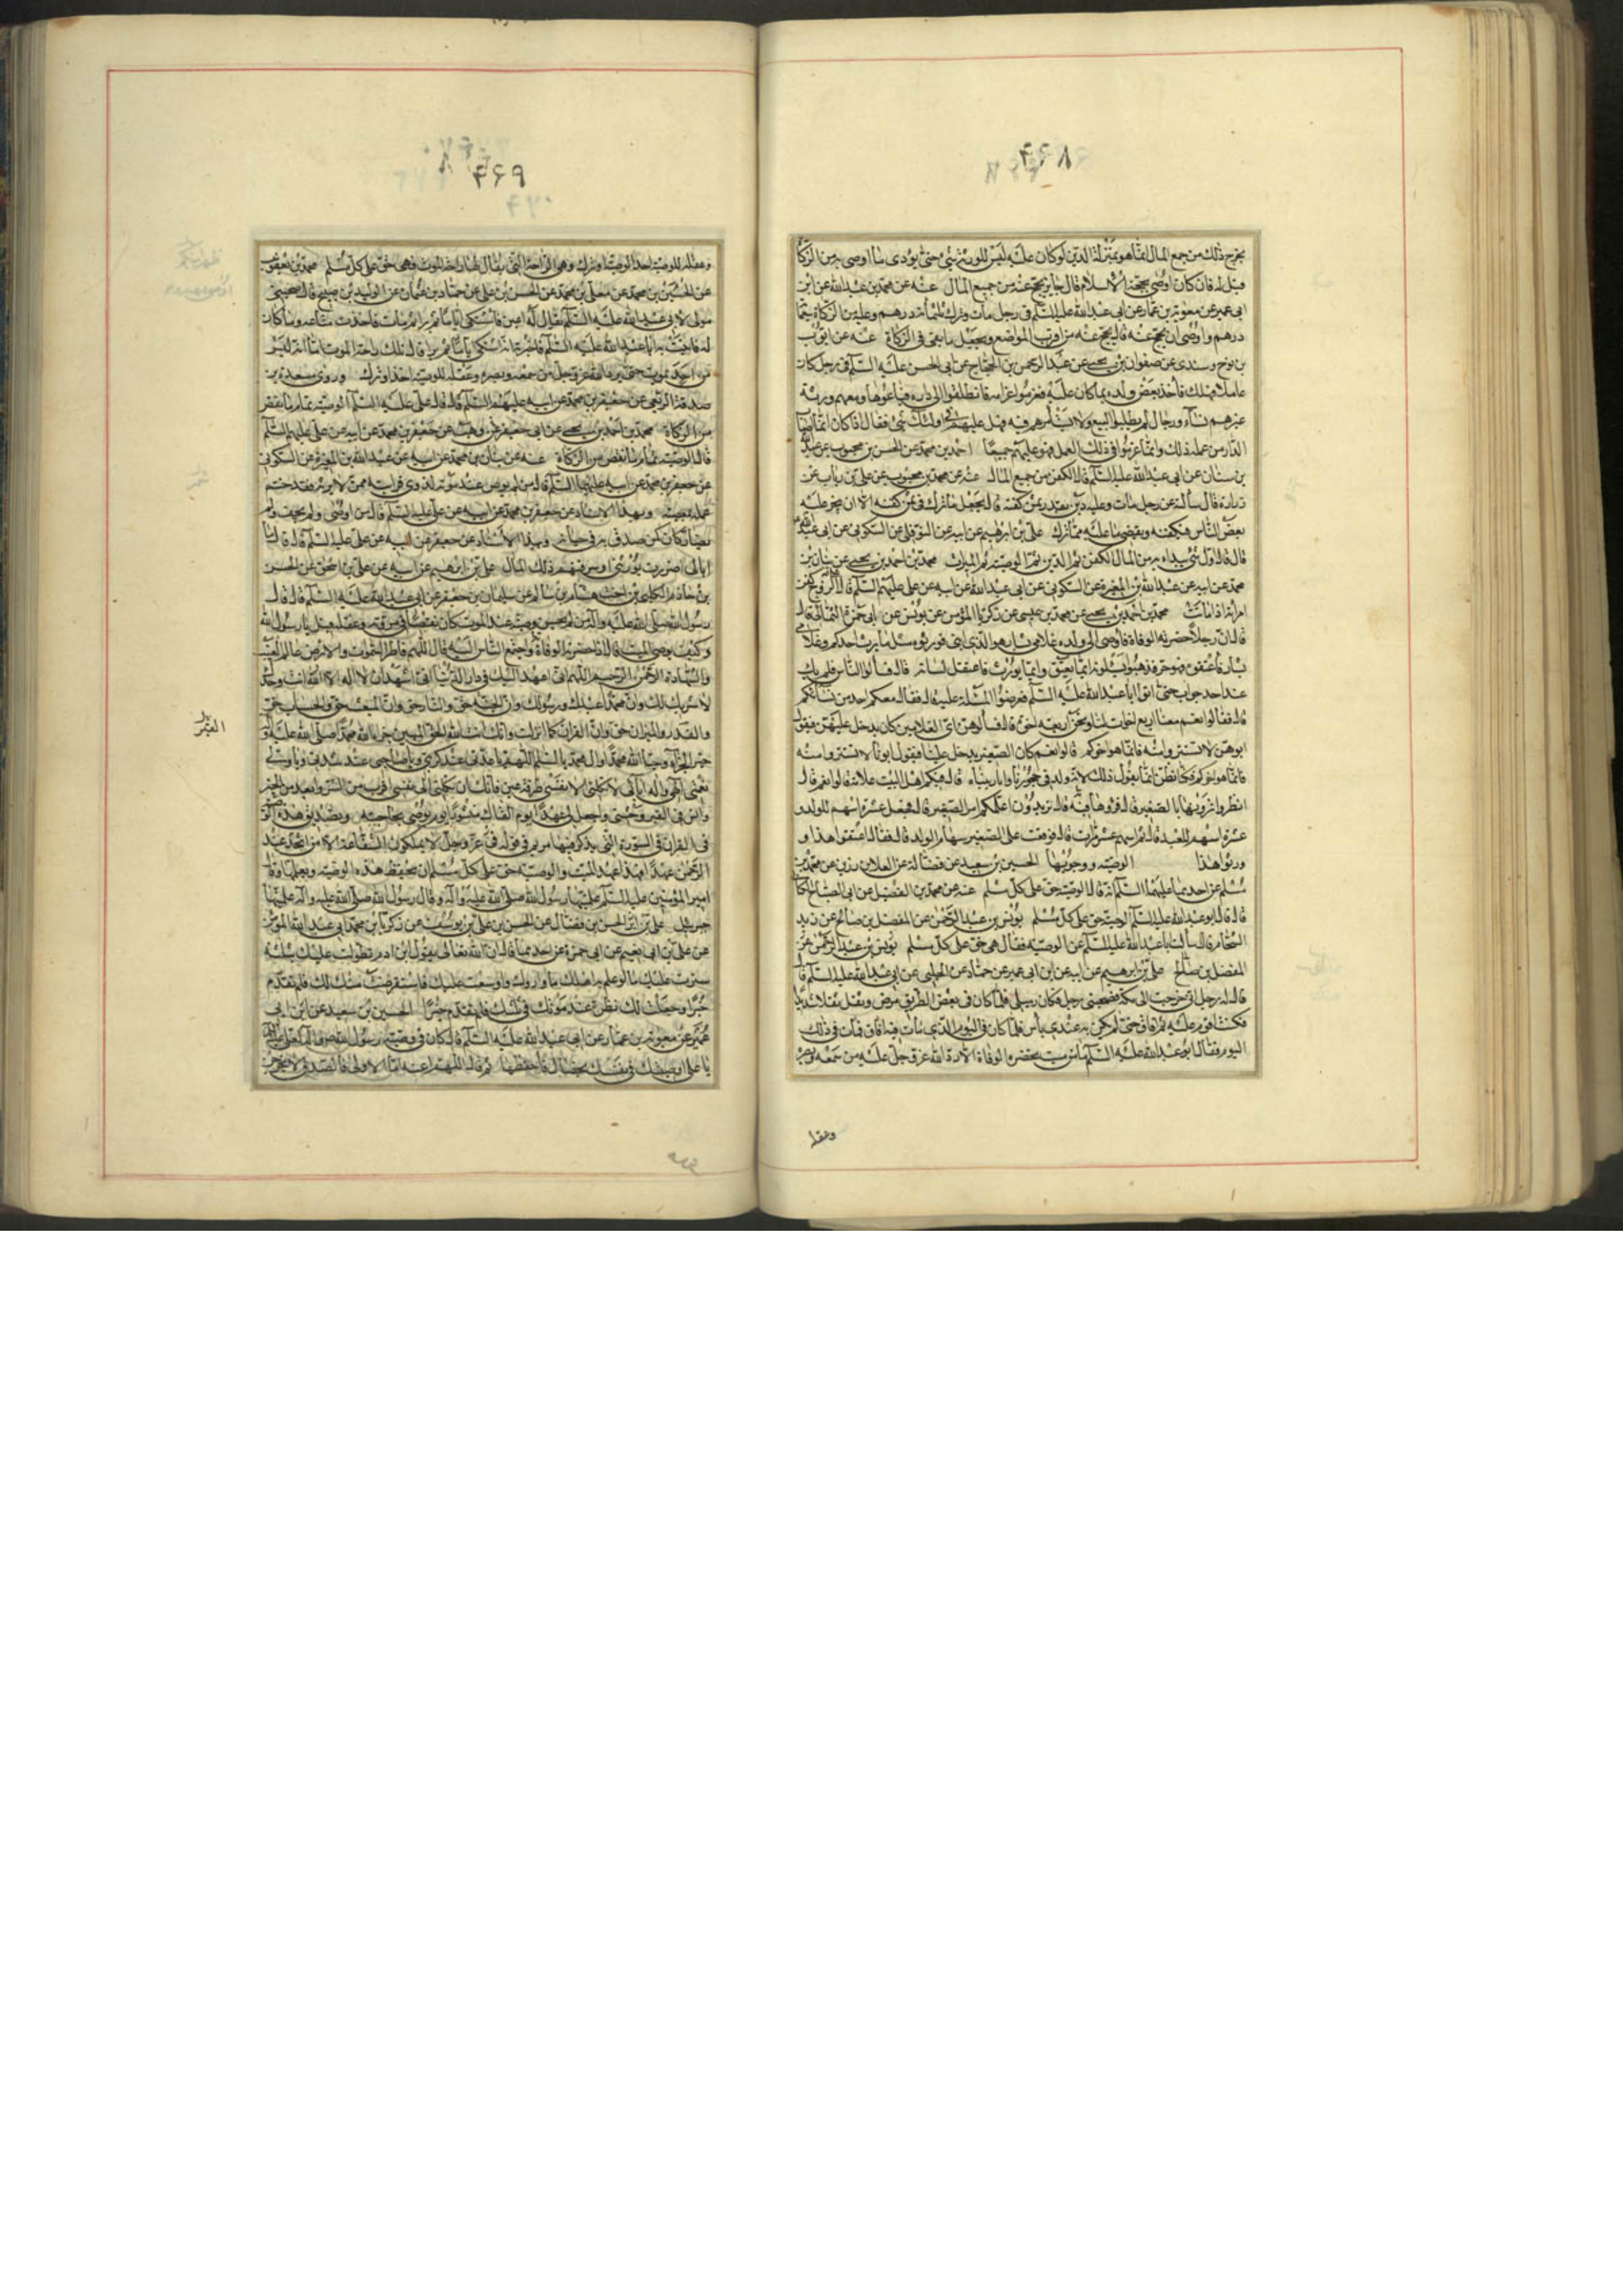 ٩٦٨
يخرج ذلك من جميع المال انما هو بمنزلة الدين لو كان عليه ليس للورثة شئ حتى يؤدى ما اوصى به من الزكا
قيل له فان كان اوصى بحجة الاسلام قال جايز يحج عنه من جميع المال عنه عن محمد بن عبد الله عن ابن
ابى عمير عن معوية بن عمار عن ابى عبد الله عليه السلم فى رجل مات وترك ثلثمائة درهم وعليه من الزكاة سبعمائة
درهم واوصى ان يحج عنه قال يحج عنه من اقرب المواضع ويجعل ما بقى فى الزكاة عنه عن ايوب
بن نوح وسندى عن صفوان بن يحيى عن عبد الرحمن بن الحجاج عن ابى الحسن عليه السلم فى رجل كان
عاملا فهلك فأخذ بعض ولده بما كان عليه فغرموا غرامة فانطلقوا الى داره فباعوها ومعهم ورثة
غيرهم نساء ورجال لم يطلبوا البيع ولا يستأمرهم فيه فهل عليهم فى اولئك شئ فقال اذا كان انما اصاب
الدار من عمله ذلك وانما غرموا فى ذلك العمل فهو عليهم جميعا احمد بن محمد عن الحسن بن محبوب عن عبد الله
بن سنان عن ابى عبد الله عليه السلم قال الكفن من جميع المال عنه عن محمد بن محبوب عن على بن رياب عن
زرارة قال سألته عن رجل مات وعليه دين بقدر ثمن كفنه قال يجعل ما ترك فى ثمن كفنه الا ان يتجر عليه
بعض الناس فيكفنه ويقضى ما عليه مما ترك على بن ابرهيم عن ابيه عن النوفلى عن السكونى عن ابى عبد الله
قال قال اول شئ يبدء به من المال الكفن ثم الدين ثم الوصية ثم الميراث محمد بن احمد بن يحيى عن بنان بن
محمد عن ابيه عن عبد الله بن المغيرة عن السكونى عن ابى عبد الله عن ابيه عن على عليهم السلم قال على الزوج كفن
امراته اذا ماتت محمد بن احمد بن يحيى عن محمد بن عيسى عن زكريا المؤمن عن يونس عن ابى حمزة الثمالى قال
قال ان رجلا حضرته الوفاة فاوصى الى ولده غلامى يسار هو ابنى فورثوه مثل ما يرث احدكم وغلامى
يسار فأعتقوه فهو حر فذهبوا يسئلونه ايما يعتق وايما يورث فاعتقل لسانه قال فسألوا الناس فلم يك
عند احد جواب حتى اتوا ابا عبد الله عليه السلم فعرضوا المسئلة عليه قال فقال معكم احد من نسائكم
قال فقالوا نعم معنا اربع اخوات لنا ونحن اربعة اخوة قال فسألوهن اى الغلامين كان يدخل عليهن فيقول
ابوهن لا تستترن منه فانما هو اخوكم قالوا نعم كان الصغير يدخل علينا فيقول ابونا لا تستترن منه
فانما هو اخوكم فكنا نظن انما يقول ذلك لانه ولد فى حجورنا وانا ربيناه قال فيكم اهل البيت علامة قالوا نعم قال
انظروا اترونها بالصغير قال فراوها به قال تريدون اعلمكم امر الصغير قال فجعل عشرة اسهم للولد و
عشرة اسهم للعبد قال ثم اسهم عشر مرات قال فوقعت على الصغير سهام الولد قال فقال اعتقوا هذا و
ورثوا هذا الوصية ووجوبها الحسين بن سعيد عن فضالة عن العلا بن رزين عن محمد بن
مسلم عن احدهما عليهما السلم انه قال الوصية حق على كل مسلم عنه عن محمد بن الفضيل عن ابى الصباح الكنا
قال قال ابو عبد الله عليه السلم الوصية حق على كل مسلم يونس بن عبد الرحمن عن المفضل بن صالح عن زيد
الشحام قال سألت ابا عبد الله عليه السلم عن الوصية فقال هى حق على كل مسلم يونس بن عبد الرحمن عن
المفضل بن صالح على بن ابرهيم عن ابيه عن ابن ابى عمير عن حماد عن الحلبى عن ابى عبد الله عليه السلم قال
قال له رجل انى خرجت الى مكة فصحبنى رجل فكان زميلى فلما كان فى بعض الطريق مرض وثقل ثقلا شديدا
فكنت اقوم عليه ثم افاق حتى لم يكن به عندى بأس فلما كان فى اليوم الذى مات فيه افاق فمات فى ذلك
اليوم فقال ابو عبد الله عليه السلم ما من ميت يحضره الوفاة الا رد الله عز وجل عليه من سمعه وبصره
وعقله
٩٦٩
وعقله للوصية اخذ الوصية او ترك وهى الراحة التى يقال لها راحة الموت فهى حق على كل مسلم محمد بن يعقوب
عن الحسين بن محمد عن معلى بن محمد عن الحسن بن على عن حماد بن عثمان عن الوليد بن صبيح قال صحبنى
مولى لابى عبد الله عليه السلم يقال له اعين فاشتكى اياما ثم برا ثم مات فاخذت متاعه وما كان
له فاتيت به ابا عبد الله عليه السلم فاخبرته انه اشتكى اياما ثم برا ثم مات قال تلك راحة الموت اما انه ليس
من احد يموت حتى يرد الله عز وجل من سمعه وبصره وعقله للوصية اخذ او ترك وروى مسعدة بن
صدقة الربعى عن جعفر بن محمد عن ابيه عليهما السلم قال قال على عليه السلم الوصية تمام ما نقص
من الزكاة محمد بن احمد بن يحيى عن ابى جعفر عن وهب عن جعفر بن محمد عن ابيه عن على عليهم السلم
قال الوصية تمام ما نقص من الزكاة عنه عن بنان بن محمد عن ابيه عن عبد الله بن المغيرة عن السكونى
عن جعفر بن محمد عن ابيه عليهما السلم قال من لم يوص عند موته لذوى قرابته ممن لا يرثه فقد ختم
عمله بمعصية وبهذا الاسناد عن جعفر بن محمد عن ابيه عن على عليه السلم قال من اوصى ولم يحف ولم
يضار كان كمن صدق به فى حياته وبهذا الاسناد عن جعفر عن ابيه عن على عليه السلم قال قال ما
ابالى اضررت بورثتى او سرقتهم ذلك المال على بن ابرهيم عن ابيه عن على بن اسحق عن الحسن
بن حازم الكلبى بن اخت هشام بن سالم عن سليمان بن جعفر عن ابى عبد الله عليه السلم قال قال
رسول الله صلى الله عليه وآله من لم يحسن وصيته عند الموت كان نقصا فى مروته وعقله قيل يا رسول الله
وكيف يوصى الميت قال اذا حضرته الوفاة واجتمع الناس اليه قال اللهم فاطر السموات والارض عالم الغيب
والشهادة الرحمن الرحيم اللهم انى اعهد اليك فى دار الدنيا انى اشهد ان لا اله الا الله انت وحدك
لا شريك لك وان محمدا عبدك ورسولك وان الجنة حق والنار حق وان البعث حق والحساب حق
والقدر والميزان حق وان القران كما انزلت وانك انت الله الحق المبين جزا الله محمدا صلى الله عليه وآله
خير الجزاء وحيا الله محمدا وال محمد بالسلم اللهم يا عدتى عند كربتى ويا صاحبى عند شدتى ويا ولى
نعمتى الهى واله ابائى لا تكلنى الى نفسى طرفة عين فانك ان تكلنى الى نفسى اقرب من الشر وابعد من الخير
وانس فى القبر وحشتى واجعل لى عهدا يوم القاك منشورا ثم يوصى بحاجته وتصديق هذه الوصية
فى القران فى السورة التى يذكر فيها مريم فى قوله عز وجل لا يملكون الشفاعة الا من اتخذ عند
الرحمن عهدا فهذا عهد الميت والوصية حق على كل مسلم ان يحفظ هذه الوصية ويعلمها وقال
امير المؤمنين عليه السلم علمنيها رسول الله صلى الله عليه وآله وقال رسول الله صلى الله عليه وآله علمنيها
جبرئيل على بن الحسن بن فضال عن الحسن بن على بن يوسف عن زكريا بن محمد ابى عبد الله المؤمن
عن على بن ابى نعيم عن ابى حمزة عن احدهما قال ان الله تعالى يقول ابن ادم تطولت عليك بثلثة
سترت عليك ما لو علم به اهلك ما واروك واوسعت عليك فاستقرضت منك لك فلم تقدم
خيرا وجعلت لك نظرة عند موتك فى ثلثك فلم تقدم خيرا الحسين بن سعيد عن ابن ابى
عمير عن معوية بن عمار عن ابى عبد الله عليه السلم قال كان فى وصية رسول الله ص لعلى عليه السلم
يا على اوصيك فى نفسك بخصال فاحفظها ثم قال اللهم اعنه اما الاولى فالصدق لا يخرجن
القبر